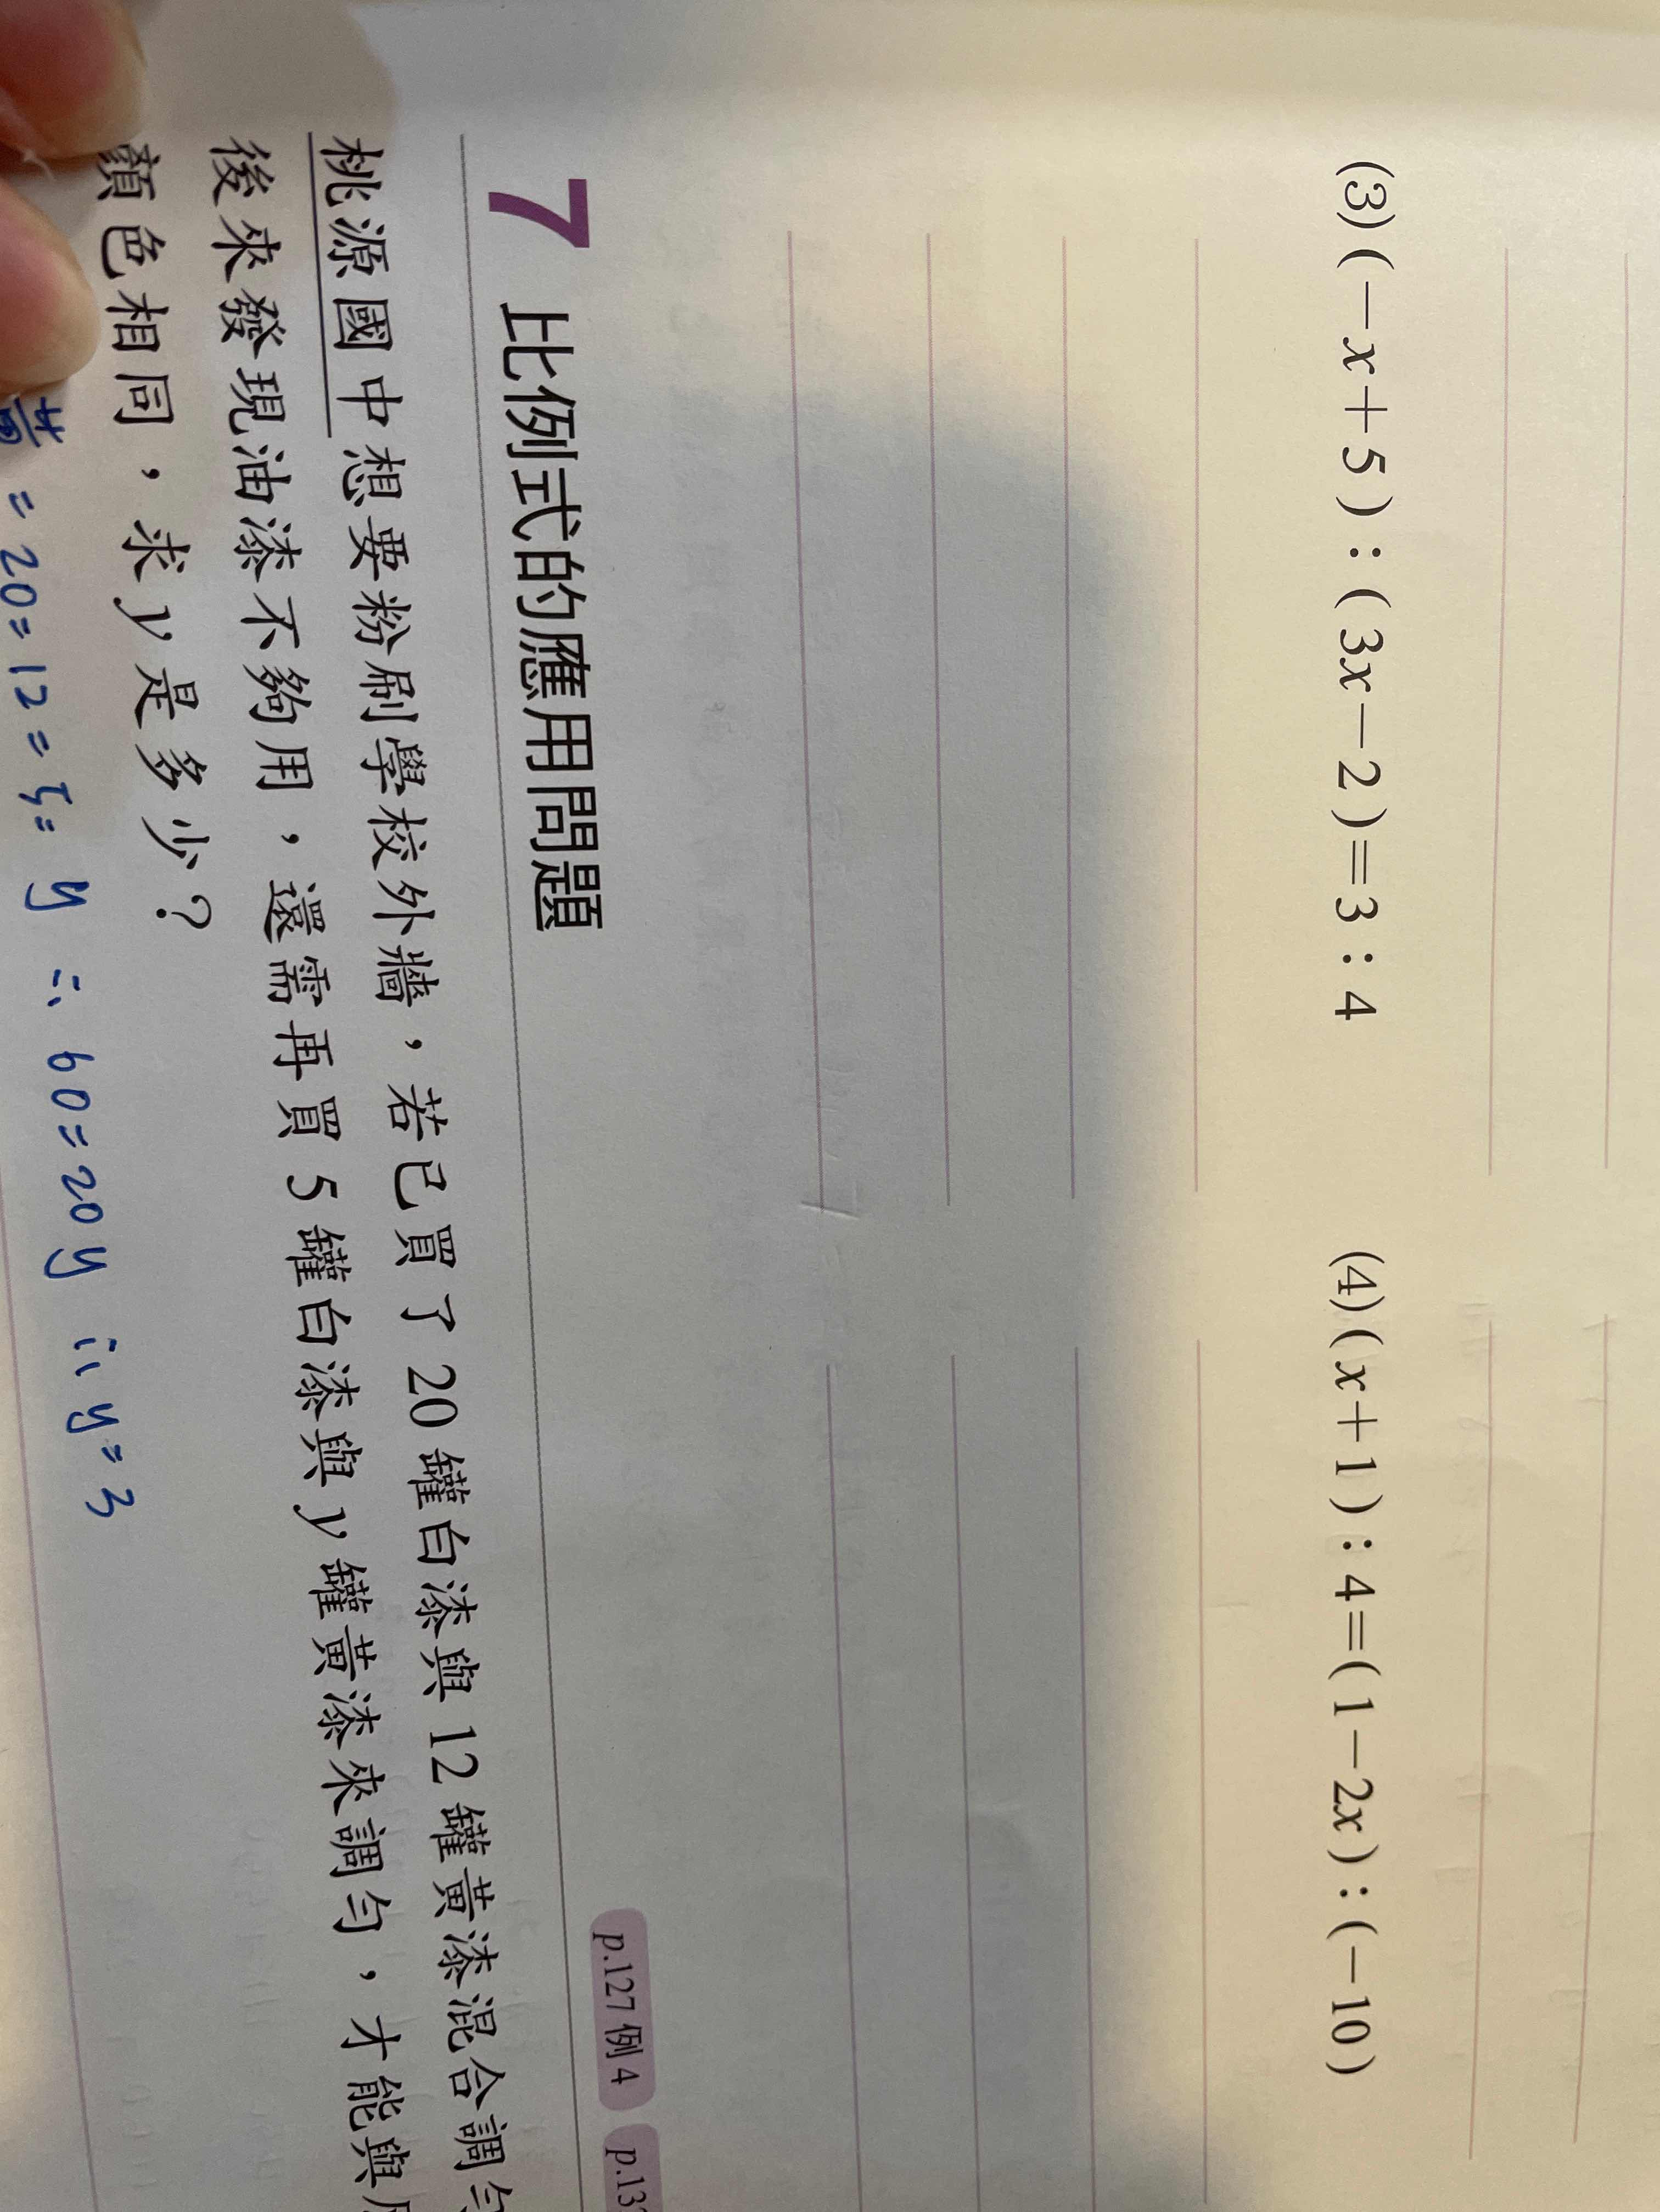 (3)(－x＋5)：(3x－2)＝3：4
(4)(x＋1)：4＝(1－2x)：(－10)
7 比例式的應用問題
p.127 例 4
p.13
桃源國中想要粉刷學校外牆，若已買了 20 罐白漆與 12 罐黃漆混合調勻
後來發現油漆不夠用，還需再買 5 罐白漆與 y 罐黃漆來調勻，才能與
顏色相同，求 y 是多少？
= 20 = 12 = 5 = y ∴ 60 = 20y ∴ y = 3